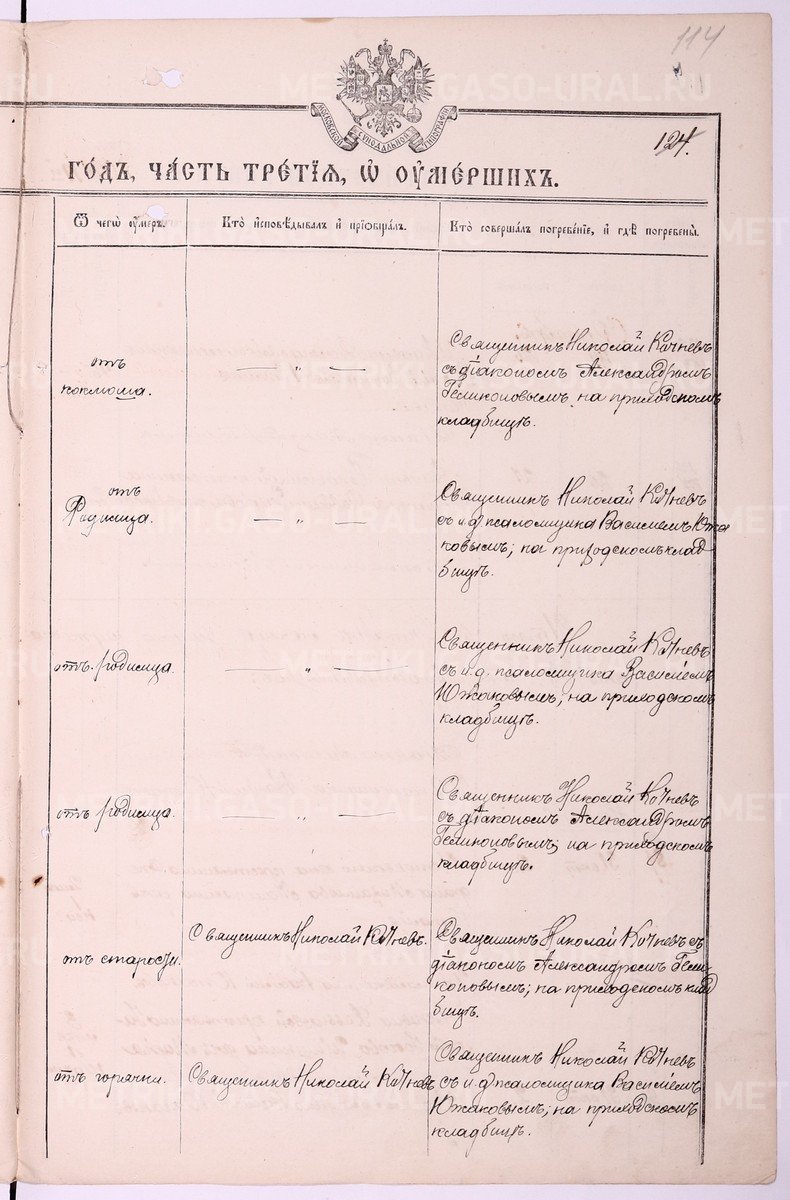 114
МОСКОВСКОЙ СѴНОДАЛЬНОЙ ТИПОГРАФІИ
124.
ГОДЪ, ЧАСТЬ ТРЕТІЯ, Ѡ ОУМЕРШИХЪ.
Ѿ чегѡ оумеръ.
Кто исповѣдывалъ и пріобщалъ.
Кто совершалъ погребеніе, и гдѣ погребены.
отъ
коклюша.
— „ —
Священникъ Николай Кочневъ
съ діакономъ Александромъ
Геликоновымъ, на приходскомъ
кладбищѣ.
отъ
Родимца.
— „ —
Священникъ Николай Кочневъ
съ и. д. псаломщика Василіемъ Южа
ковымъ; на приходскомъ клад
бищѣ.
отъ родимца.
— „ —
Священникъ Николай Кочневъ
съ и. д. псаломщика Василіемъ
Южаковымъ; на приходскомъ
кладбищѣ.
отъ родимца.
— „ —
Священникъ Николай Кочневъ
съ діакономъ Александромъ
Геликоновымъ; на приходскомъ
кладбищѣ.
отъ старости.
Священникъ Николай Кочневъ.
Священникъ Николай Кочневъ съ
діакономъ Александромъ Гели
коновымъ; на приходскомъ клад
бищѣ.
отъ горячки.
Священникъ Николай Кочневъ
Священникъ Николай Кочневъ
съ и. д. псаломщика Василіемъ
Южаковымъ; на приходскомъ
кладбищѣ.